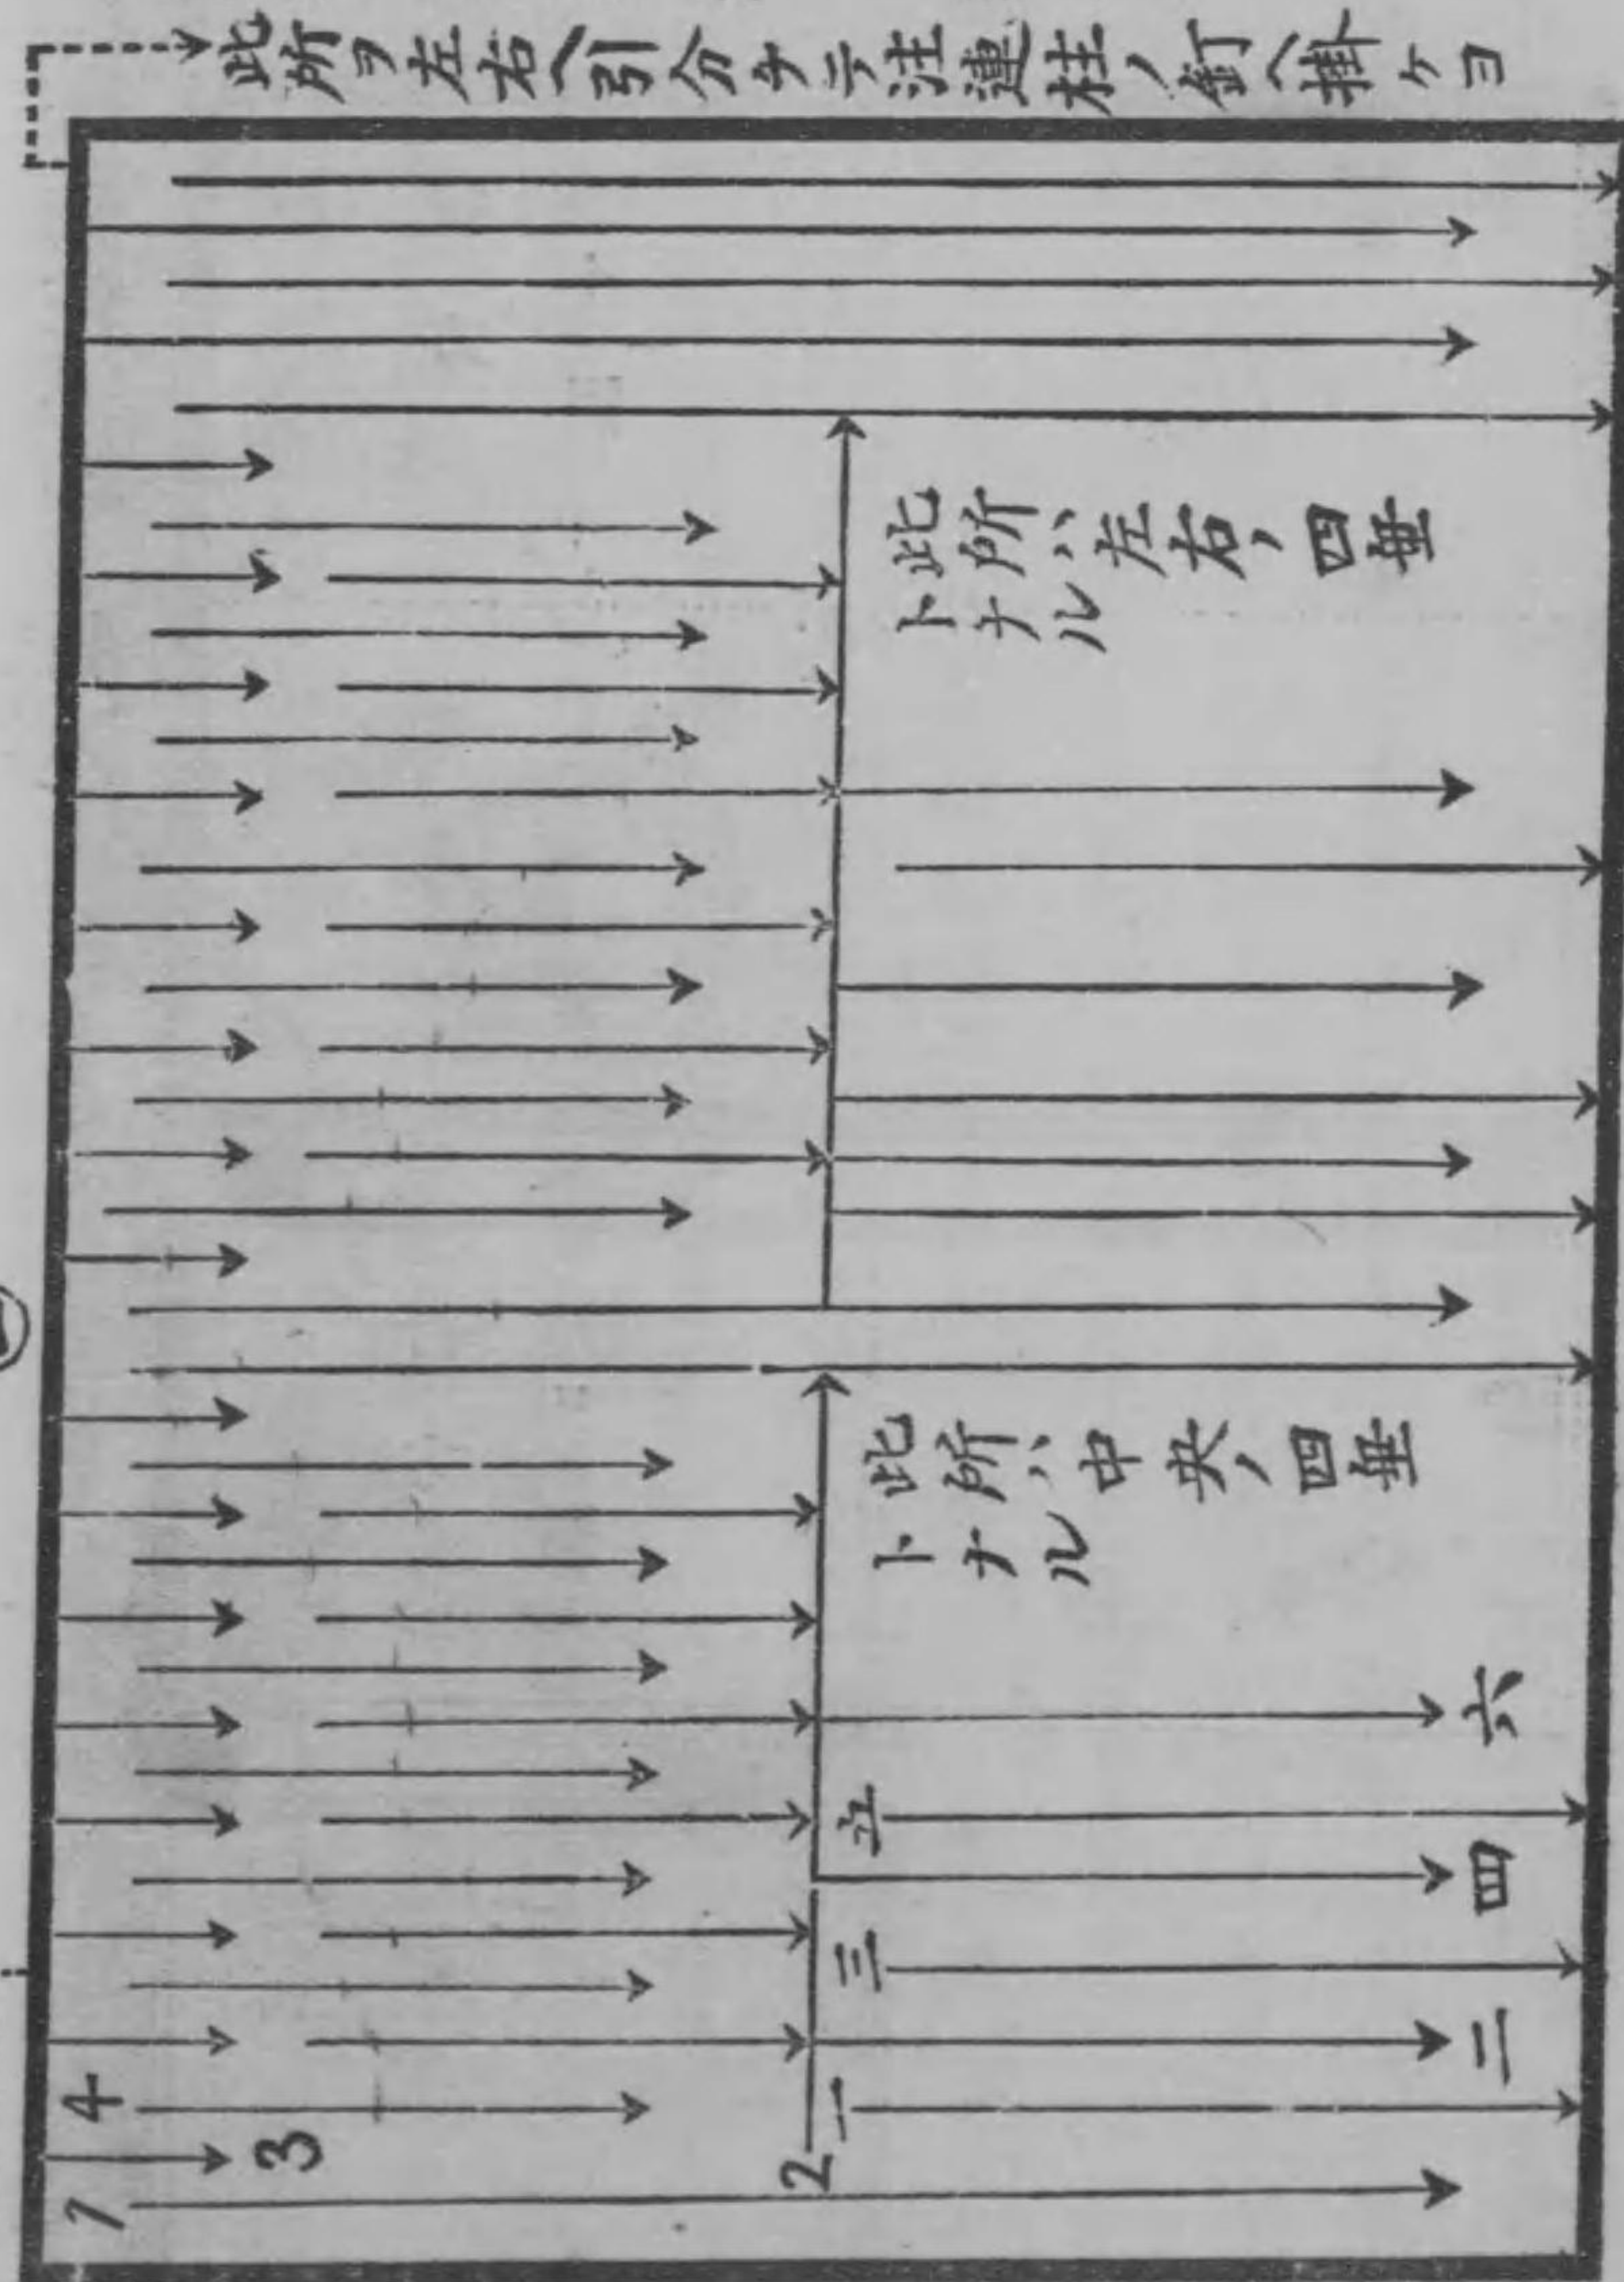 此所ヲ左右ヘ引分チテ注連柱ノ釘ヘ掛ケヨ
此所ハ左右ノ四垂
トナル
此所ハ中央ノ四垂
トナル
1
4
3
2
一
二
三
四
五
六